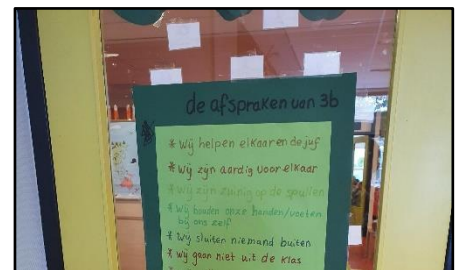 de afspraken van 3b
* Wij helpen elkaar en de juf
* Wij zijn aardig voor elkaar
* Wij zijn zuinig op de spullen
* Wij houden onze handen/voeten
bij ons zelf
* Wij sluiten niemand buiten
* Wij gaan niet uit de klas